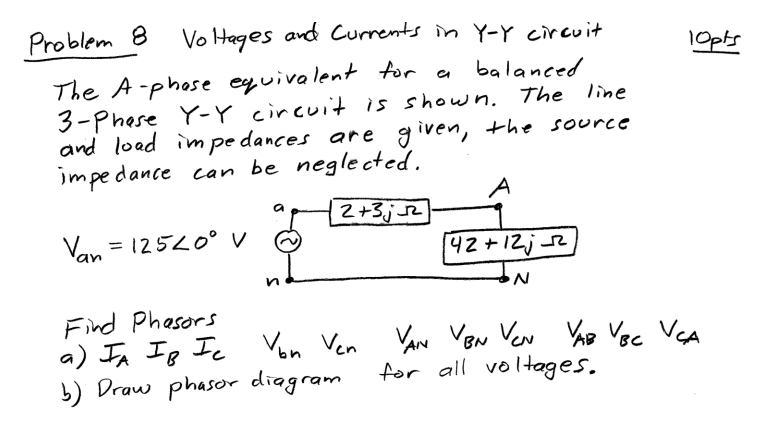 Problem 8 Voltages and Currents in Y-Y circuit 10pts
The A-phase equivalent for a balanced
3-Phase Y-Y circuit is shown. The line
and load impedances are given, the source
impedance can be neglected.
A
a 2+3j Ω
Van = 125∠0° V 42+12j Ω
n N
Find Phasors
a) IA IB Ic Vbn Vcn VAN VBN VCN VAB VBC VCA
b) Draw phasor diagram for all voltages.